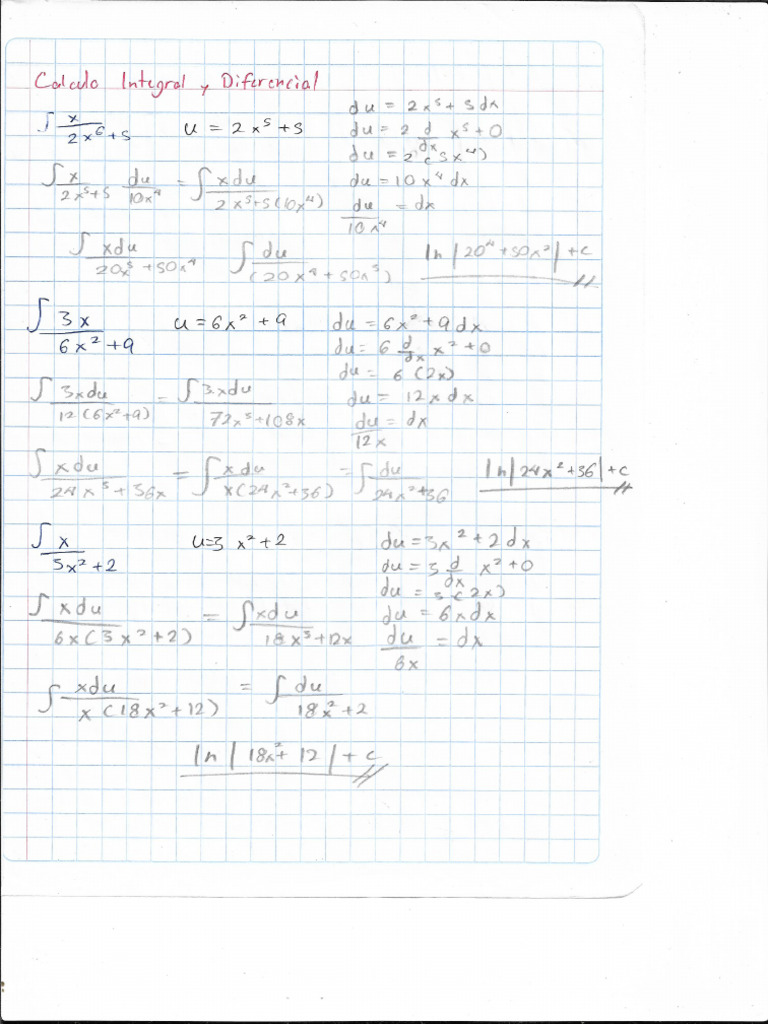 Calculo Integral y Diferencial
∫ x / 2x⁶+5    u = 2x⁵+5    du = 2x⁵+5 dx
du = 2 d/dx x⁵+0
du = 2(5x⁴)
∫ x / 2x⁵+5  du / 10x⁴ = ∫ xdu / 2x⁵+5(10x⁴)    du = 10x⁴ dx
du / 10x⁴ = dx
∫ xdu / 20x⁵+50x⁴    ∫ du / (20x⁴+50x³)    ln|20⁴+50x²|+c
∫ 3x / 6x²+9    u = 6x²+9    du = 6x²+9 dx
du = 6 d/dx x²+0
du = 6(2x)
∫ 3xdu / 12(6x²+9) = ∫ 3xdu / 72x³+108x    du = 12x dx
du / 12x = dx
∫ xdu / 24x³+36x = ∫ xdu / x(24x²+36) = ∫ du / 24x²+36    ln|24x²+36|+c
∫ x / 3x²+2    u=3x²+2    du=3x²+2dx
du = 3 d/dx x²+0
du = 3(2x)
∫ xdu / 6x(3x²+2) = ∫ xdu / 18x³+12x    du = 6xdx
du / 6x = dx
∫ xdu / x(18x²+12) = ∫ du / 18x²+2
ln|18x²+12|+c